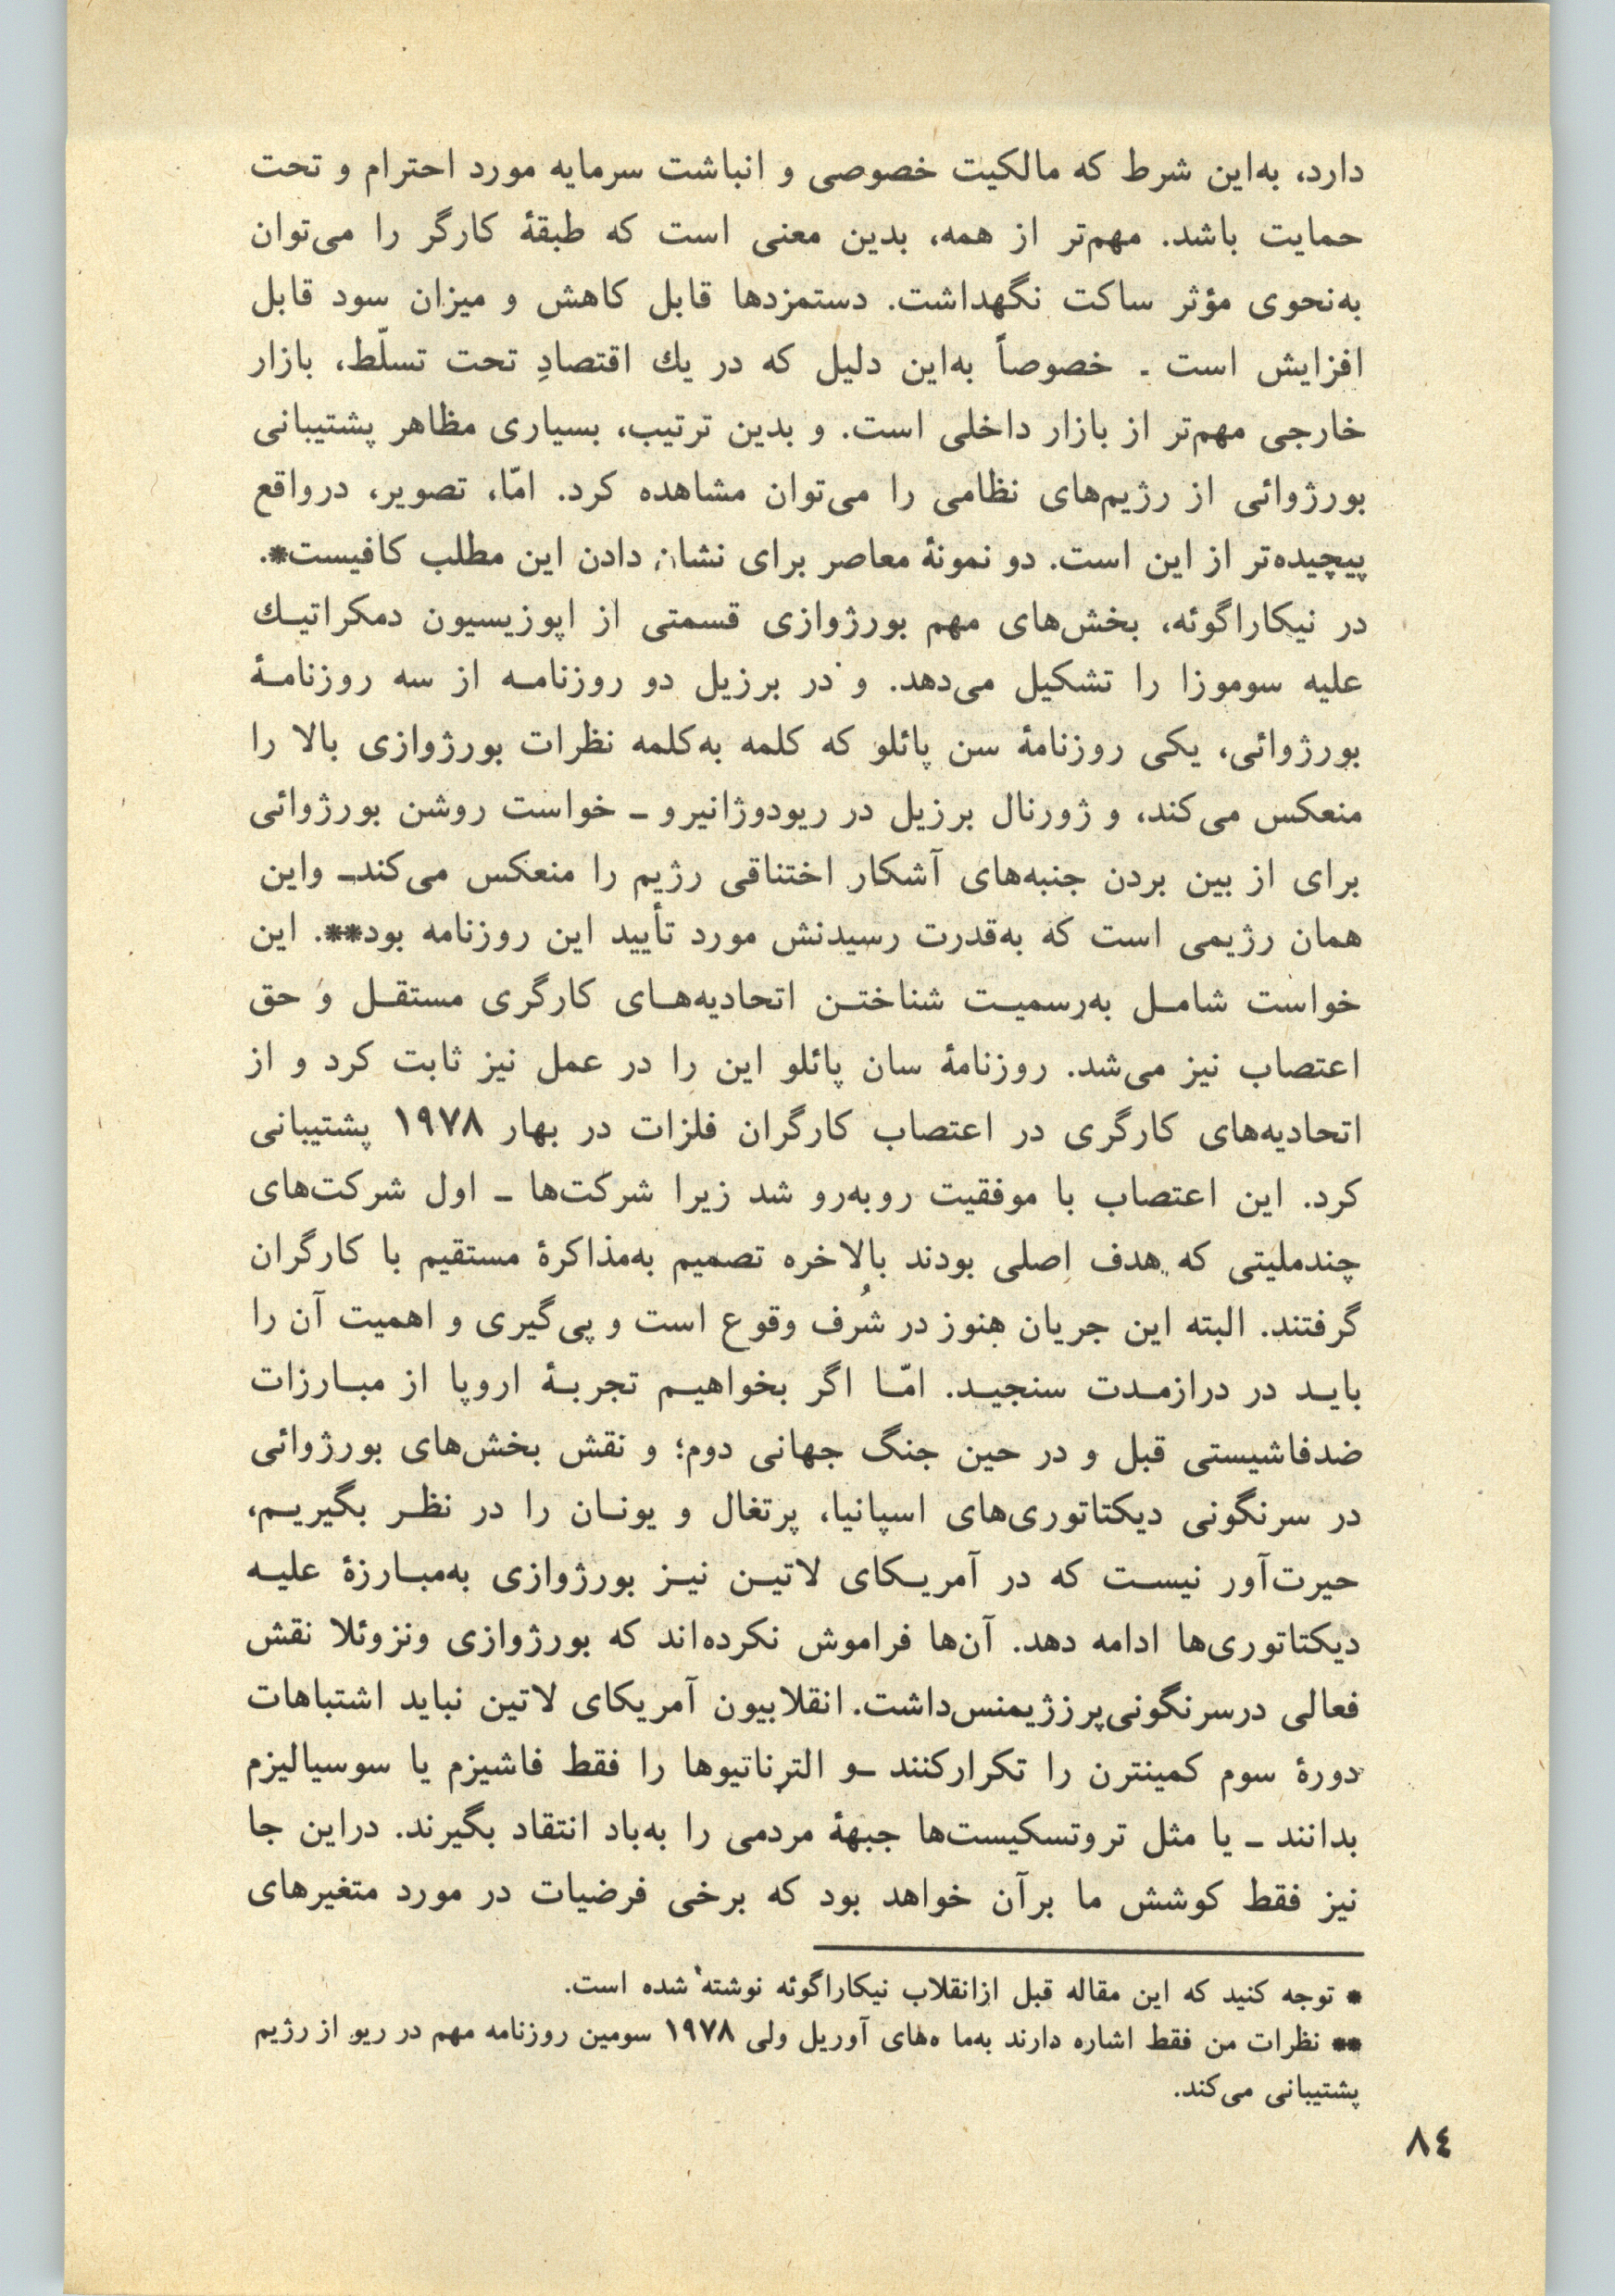 دارد، به‌این شرط که مالکیت خصوصی و انباشت سرمایه مورد احترام و تحت
حمایت باشد. مهم‌تر از همه، بدین معنی است که طبقهٔ کارگر را می‌توان
به‌نحوی مؤثر ساکت نگهداشت. دستمزدها قابل کاهش و میزان سود قابل
افزایش است ـ خصوصاً به‌این دلیل که در یك اقتصادِ تحت تسلّط، بازار
خارجی مهم‌تر از بازار داخلی است. و بدین ترتیب، بسیاری مظاهر پشتیبانی
بورژوائی از رژیم‌های نظامی را می‌توان مشاهده کرد. امّا، تصویر، درواقع
پیچیده‌تر از این است. دو نمونهٔ معاصر برای نشان دادن این مطلب کافیست*.
در نیکاراگوئه، بخش‌های مهم بورژوازی قسمتی از اپوزیسیون دمکراتیـك
علیه سوموزا را تشکیل می‌دهد. و در برزیل دو روزنامـه از سه روزنامـهٔ
بورژوائی، یکی روزنامهٔ سن پائلو که کلمه به‌کلمه نظرات بورژوازی بالا را
منعکس می‌کند، و ژورنال برزیل در ریودوژانیرو ـ خواست روشن بورژوائی
برای از بین بردن جنبه‌های آشکار اختناقی رژیم را منعکس می‌کندـ واین
همان رژیمی است که به‌قدرت رسیدنش مورد تأیید این روزنامه بود**. این
خواست شامـل به‌رسمیـت شناختـن اتحادیه‌هـای کارگری مستقـل و حق
اعتصاب نیز می‌شد. روزنامهٔ سان پائلو این را در عمل نیز ثابت کرد و از
اتحادیه‌های کارگری در اعتصاب کارگران فلزات در بهار ۱۹۷۸ پشتیبانی
کرد. این اعتصاب با موفقیت روبه‌رو شد زیرا شرکت‌ها ـ اول شرکت‌های
چندملیتی که هدف اصلی بودند بالاخره تصمیم به‌مذاکرهٔ مستقیم با کارگران
گرفتند. البته این جریان هنوز در شُرف وقوع است و پی‌گیری و اهمیت آن را
بایـد در درازمـدت سنجیـد. امّـا اگر بخواهیـم تجربـهٔ اروپا از مبـارزات
ضدفاشیستی قبل و در حین جنگ جهانی دوم؛ و نقش بخش‌های بورژوائی
در سرنگونی دیکتاتوری‌های اسپانیا، پرتغال و یونـان را در نظـر بگیریـم،
حیرت‌آور نیسـت که در آمریـکای لاتیـن نیـز بورژوازی به‌مبـارزهٔ علیـه
دیکتاتوری‌ها ادامه دهد. آن‌ها فراموش نکرده‌اند که بورژوازی ونزوئلا نقش
فعالی درسرنگونی‌پرزژیمنس‌داشت. انقلابیون آمریکای لاتین نباید اشتباهات
دورهٔ سوم کمینترن را تکرارکنند ـو الترناتیوها را فقط فاشیزم یا سوسیالیزم
بدانند ـ یا مثل تروتسکیست‌ها جبههٔ مردمی را به‌باد انتقاد بگیرند. دراین جا
نیز فقط کوشش ما برآن خواهد بود که برخی فرضیات در مورد متغیرهای
* توجه کنید که این مقاله قبل ازانقلاب نیکاراگوئه نوشته شده است.
** نظرات من فقط اشاره دارند به‌ما ه‌های آوریل ولی ۱۹۷۸ سومین روزنامه مهم در ریو از رژیم
پشتیبانی می‌کند.
۸٤